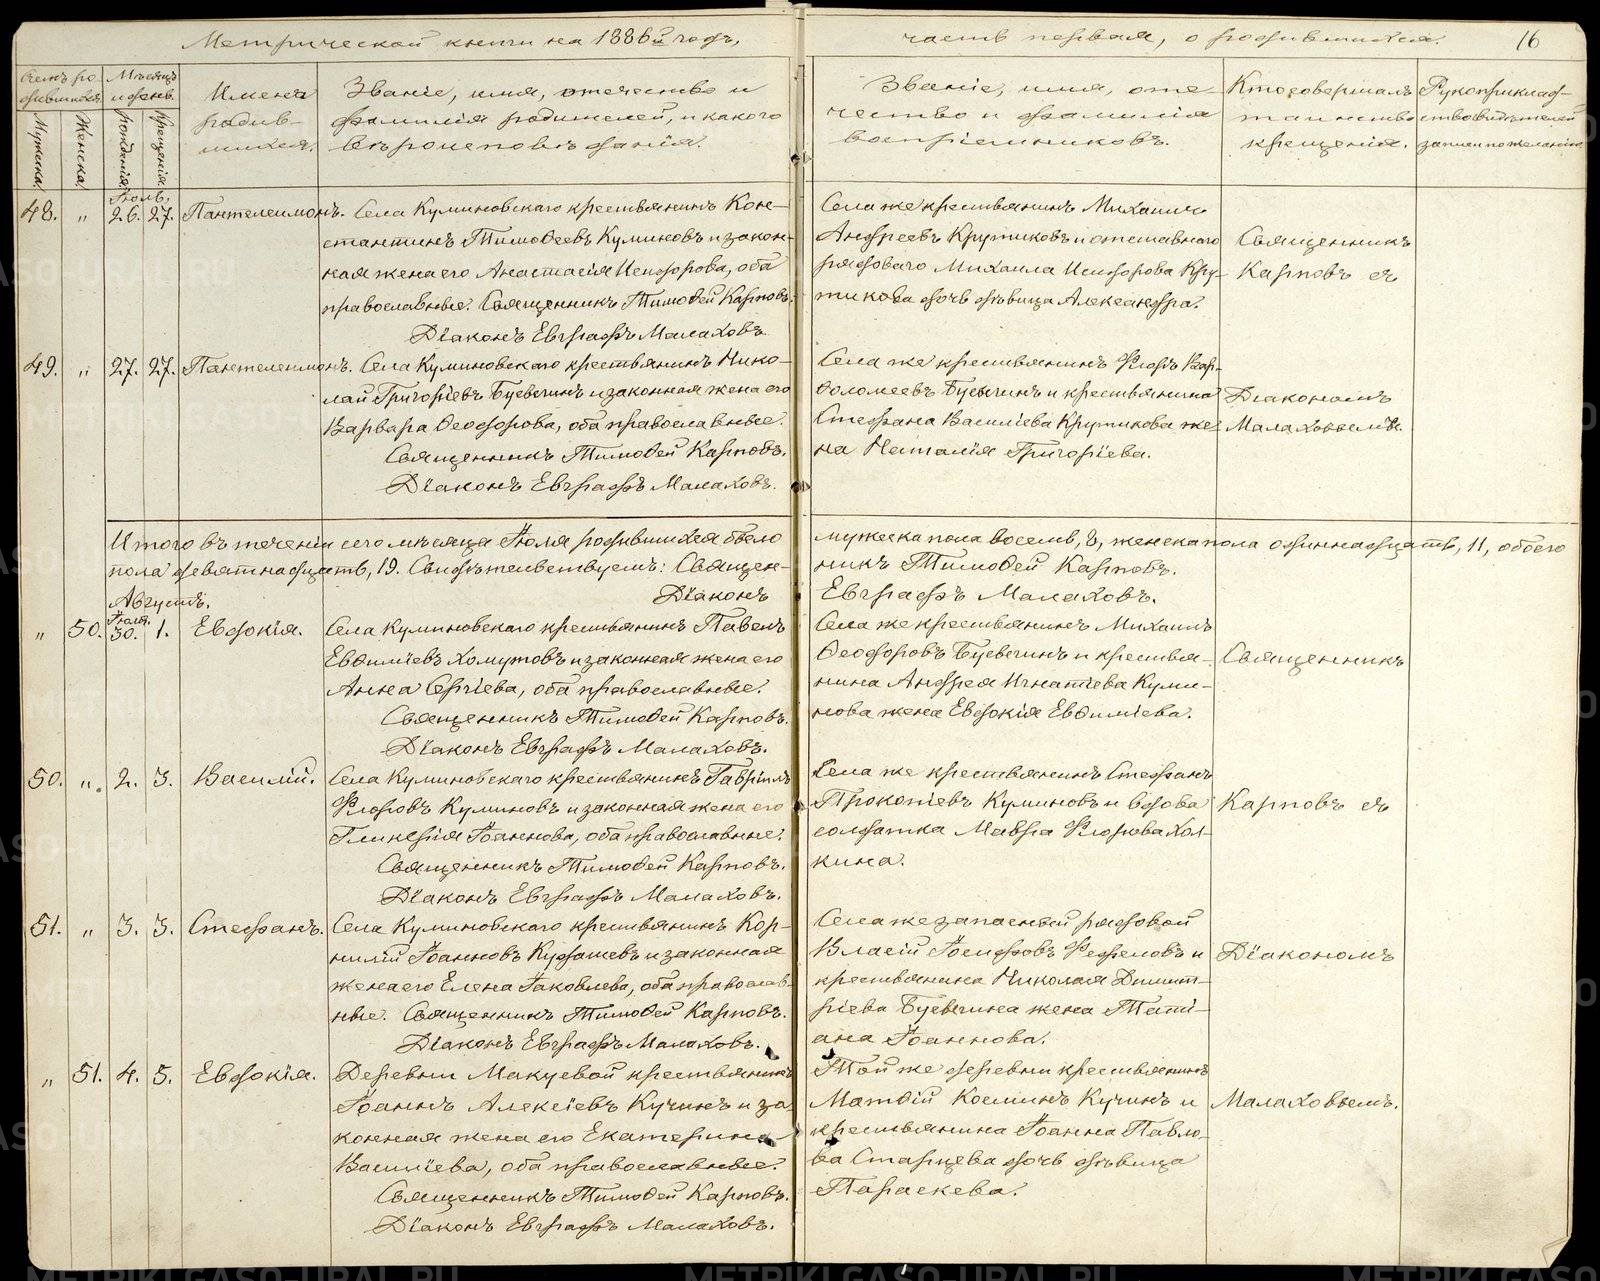 Метрической книги на 1886й годъ,
часть первая, о родившихся.
16
Счетъ ро-
дившихся.
Мужеска.
Женска.
Мѣсяцъ
и день.
рожденія.
крещенія.
Имена
родив-
шихся.
Званіе, имя, отечество и
фамилія родителей, и какого
вѣроисповѣданія.
Званіе, имя, оте-
чество и фамилія
воспріемниковъ.
Кто совершалъ
таинство
крещенія.
Рукоприклад-
ство свидѣтелей
записи по желанію
Іюль.
48. „ 26. 27. Пантелеимонъ. Села Куминовскаго крестьянинъ Кон-
стантинъ Тимоѳеевъ Куминовъ и закон-
ная жена его Анастасія Исидорова, оба
православные. Священникъ Тимоѳей Карповъ.
Діаконъ Евграфъ Малаховъ.
Села же крестьянинъ Михаилъ
Андреевъ Крутиковъ и отставнаго
рядоваго Михаила Исидорова Кру-
тикова дочь дѣвица Александра.
Священникъ
Карповъ съ
49. „ 27. 27. Пантелеимонъ. Села Куминовскаго крестьянинъ Нико-
лай Григоріевъ Буевичинъ и законная жена его
Варвара Ѳеодорова, оба православные.
Священникъ Тимоѳей Карповъ.
Діаконъ Евграфъ Малаховъ.
Села же крестьянинъ Флоръ Вар-
ѳоломеевъ Буевичинъ и крестьянина
Стефана Василіева Крутикова же-
на Наталія Григоріева.
Діакономъ
Малаховымъ.
Итого въ теченіи сего мѣсяца Іюля родившихся было
мужеска пола восемь, 8, женска пола одиннадцать, 11, обоего
пола девятнадцать, 19. Свидѣтельствуемъ: Священ-
никъ Тимоѳей Карповъ.
Діаконъ
Евграфъ Малаховъ.
Августъ.
Іюля.
„ 50. 30. 1. Евдокія. Села Куминовскаго крестьянинъ Павелъ
Евѳиміевъ Хомутовъ и законная жена его
Анна Сергіева, оба православные.
Священникъ Тимоѳей Карповъ.
Діаконъ Евграфъ Малаховъ.
Села же крестьянинъ Михаилъ
Ѳеодоровъ Буевичинъ и крестья-
нина Андрея Игнатіева Куми-
нова жена Евдокія Евѳиміева.
Священникъ
50. „ 2. 3. Василій. Села Куминовскаго крестьянинъ Гавріилъ
Флоровъ Куминовъ и законная жена его
Гликерія Іоаннова, оба православные.
Священникъ Тимоѳей Карповъ.
Діаконъ Евграфъ Малаховъ.
Села же крестьянинъ Стефанъ
Прокопіевъ Куминовъ и вдова
солдатка Мавра Флорова Хол-
кина.
Карповъ съ
51. „ 3. 3. Стефанъ. Села Куминовскаго крестьянинъ Кор-
нилій Іоанновъ Кудашевъ и законная
жена его Елена Іаковлева, оба православ-
ные. Священникъ Тимоѳей Карповъ.
Діаконъ Евграфъ Малаховъ.
Села же запасный рядовой
Власій Іосифовъ Феделовъ и
крестьянина Николая Димит-
ріева Буевичина жена Тати-
ана Іоаннова.
Діакономъ
„ 51. 4. 5. Евдокія. Деревни Макуевой крестьянинъ
Іоаннъ Алексіевъ Кучинъ и за-
конная жена его Екатерина
Василіева, оба православные.
Священникъ Тимоѳей Карповъ.
Діаконъ Евграфъ Малаховъ.
Той же деревни крестьянинъ
Матѳій Косминъ Кучинъ и
крестьянина Іоанна Павло-
ва Старцева дочь дѣвица
Параскева.
Малаховымъ.
METRIKI.GASO-URAL.RU
METRIKI.GASO-URAL.RU